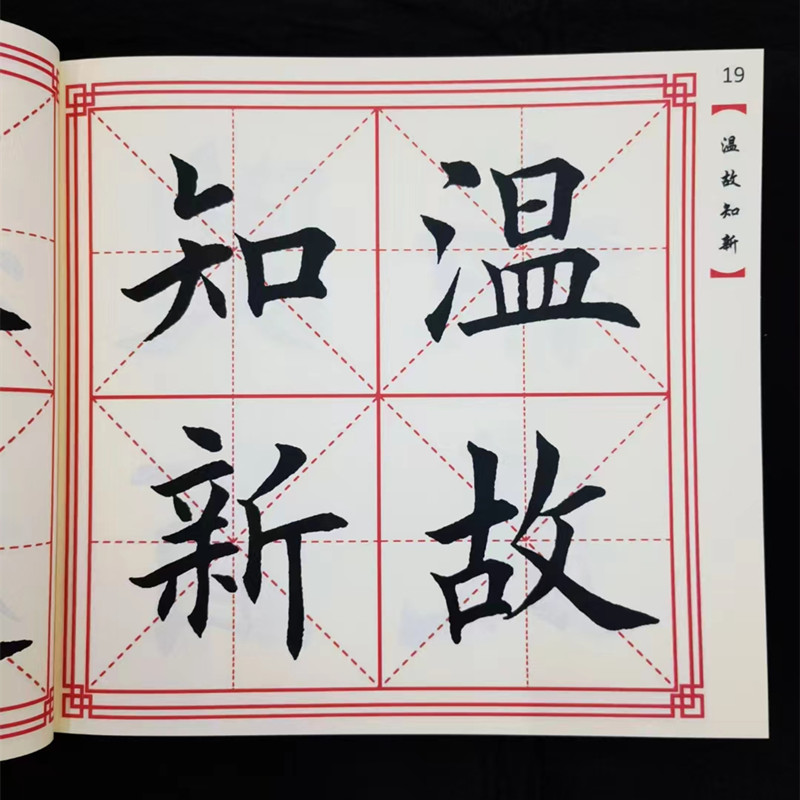 温故
知新
19
【温故知新】